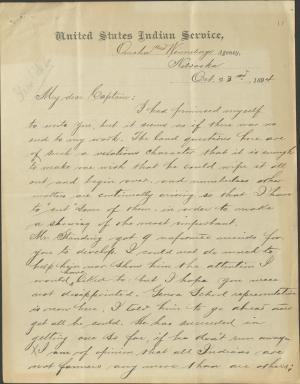 United States Indian Service,
Omaha and Winnebago Agency,
Nebraska
Oct. 23rd, 1894
My dear Captain:
I had promised myself
to write you, but it seems as if there was no
end to my work. The land questions here are
of such a vexatious character that it is enough
to make one wish that he could wipe it all
out, and begin over, and numberless other
matters are continually arising so that I have
to "sit" some of them in order to make
a showing of the most important.
Mr. Standing got 9 recruits for
you he I could not do much to
help him nor show him the attention I
would have liked to but I hope you were
not disappointed. Genoa School representative
is now here, I told him to go ahead and
get all he could. He has succeeded in
getting one so far, if he don't run away.
I am of opinion that all Indians are
not farmers any more than are others